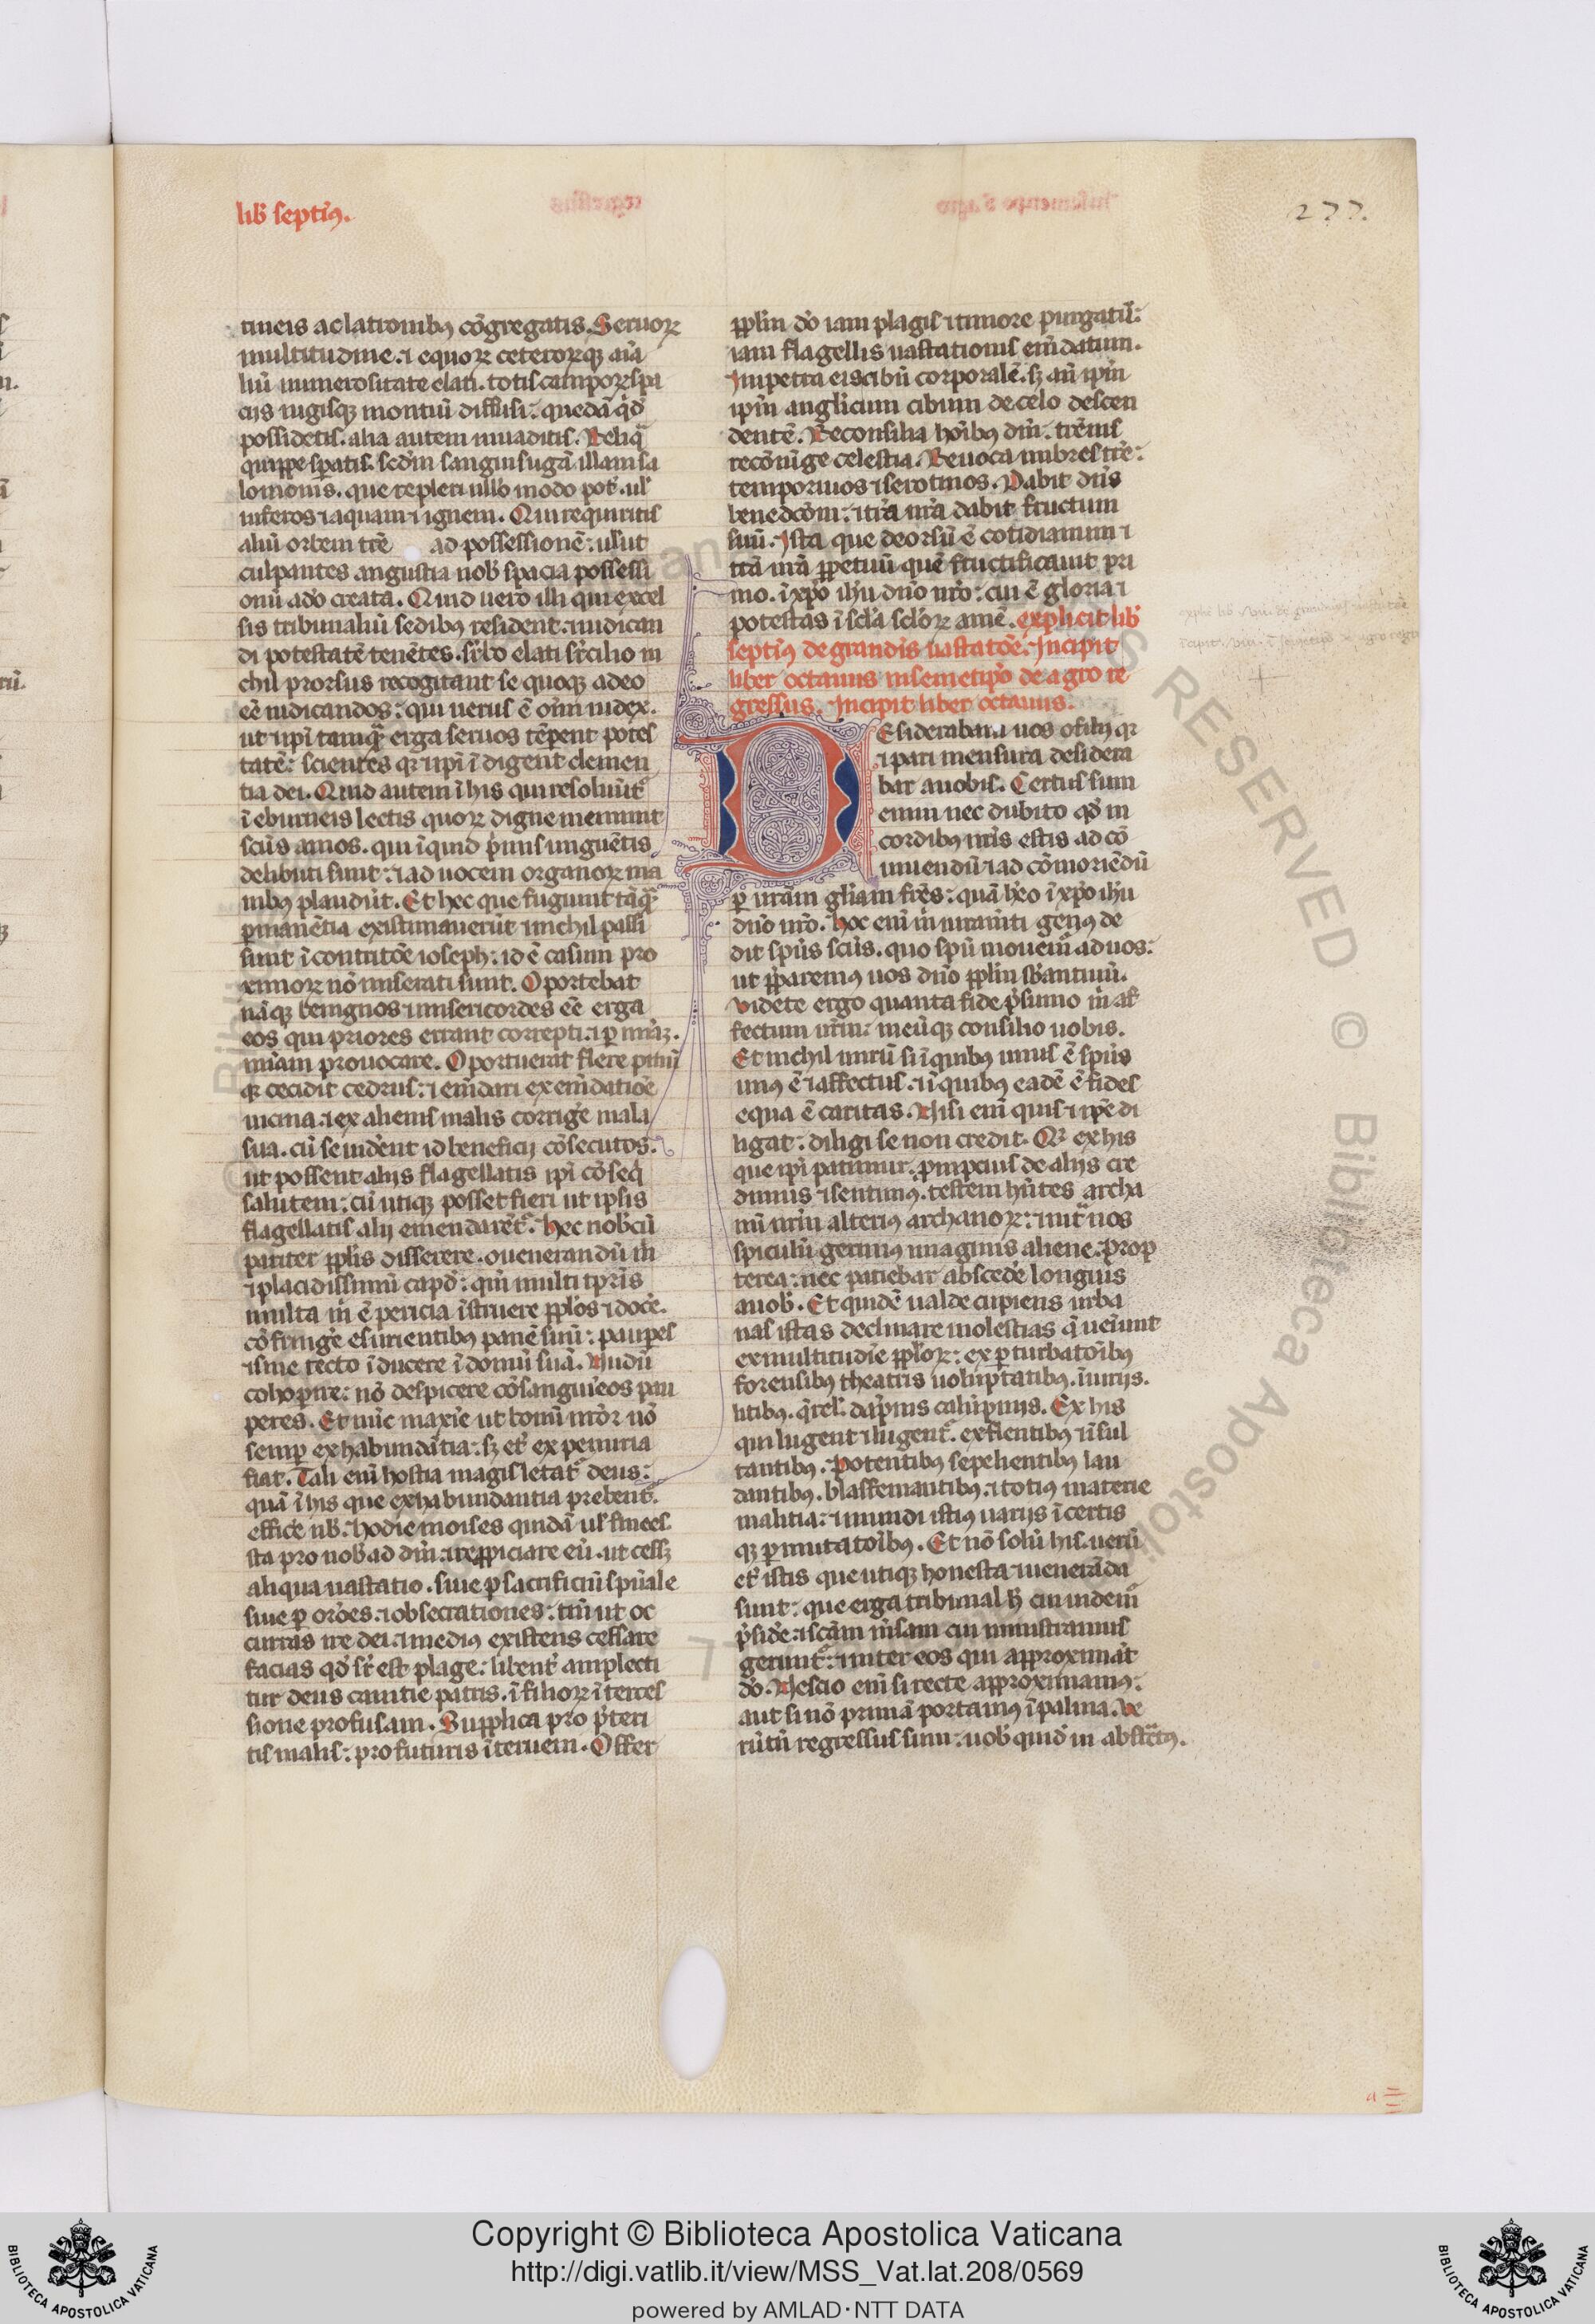 lib̾ septimꝰ.
277.
tineis ac latronibꝰ cōgregatis. Seruoꝝ
multitudine. ⁊ equoꝝ ceteroꝝqꝫ aīa
liū numerositate elati. totis campoꝝ spa
ciis iugisqꝫ montiū diffusi: quedā q̇d̾
possidetis. alia autem inuaditis. Reliq̄
quippe spatis. sedm̄ sanguisugā illam sa
lomonis. que repleri ullo modo pot̾. ul̾
inferos ⁊ aquam ⁊ ignem. Qui requiritis
aliū orbem tr̄e ad possessionē: ul̾ ut
culpantes angustia nob̾ spacia possessi
onū a do creata. Quid uero illi qui excel
sis tribunaliū sedibꝰ resident. ⁊ iudican
di potestatē tenētes. sr̄bo elati sr̄cilio ni
chil prorsus recogitant se quoqꝫ a deo
eē iudicandos: qui uerus ē oīm iudex.
ut ip̄i tamq̄ erga seruos tēperent potes
tatē: scientes qꝛ ⁊ ip̄i īdigent clemen
tia dei. Quid autem ī his qui resoluūt̾
ī eburneis lectis quoꝝ digne meminit
sc̄us amos. qui īquid p̄mis unguētis
delibuti sunt: ⁊ ad uocem organoꝝ ma
nibꝰ plaudūt. Et hec que fugiunt tāq̄
ꝑmanētia existimauerūt ⁊ nichil passi
sunt ī contritōe ioseph: id ē casum pro
ximoꝝ nō miserati sunt. Oportebat
nāqꝫ benignos ⁊ misericordes eē erga
eos qui priores errant correpti. ⁊ ꝑ
mīam prouocare. Oportuerat flere pinū
qꝛ cecidit cedrus: ⁊ em̄dari ex em̄datiōe
uicina. ⁊ ex alienis malis corrig̾e mala
sua. cū se uider̄nt id beneficii cōsecutos:
ut possent aliis flagellatis ip̄i cōseq̇
salutem: cū utiqꝫ posset fieri ut ipsis
flagellatis alij emendarēt̾. Hec nob̾ cū
pariter pplis disserere. o uenerandū m̄
⁊ placidissimū capd̾: qm̄ multi tpr̄is
multa m̄ ē pericia īstruere pplos ⁊ doc̾e.
cōfring̾e esurientibꝰ panē suū: paupes
⁊ sine tecto īducere ī domū suā. Nudū
cohoꝑire: nō despicere cōsanguīeos pau
peres. Et nūc maxīe ut bonū nr̄oꝝ nō
semp ex habundātia: sꝫ et̾ ex penuria
fiat. Tali enī hostia magis letat̾ deus:
quā ī his que ex habundantia prebent̾.
effice nb̾. hodie moises quidā ul̾ finees.
sta pro nob̾ ad dm̄. ⁊ repp̄iciare eū. ut cessꝫ
aliqua uastatio. siue ꝑ sacrificiū spūale
siue ꝑ orōes. ⁊ obsecrationes: tm̄ ut oc
curras ire dei. ⁊ medius existens cessare
facias qd̾ sr̄ est plage: libent̾ amplecti
tur deus canitie patris. ī filioꝝ īterces
sione profusam. Supplica pro p̄teri
tis malis: pro futuris īterueni. Offer
pplm̄ do iam plagis ⁊ timore purgatū:
iam flagellis uastationis em̄datum.
Impetra eis cibū corporalē. sꝫ an̄ ip̄m
ip̄m anglicum cibum de celo descen
dentē. Reconsilia hoībꝰ dm̄. tr̄enis
recōiūge celestia. Reuoca imbres tr̄e:
temporiuos ⁊ serotinos. Dabit dn̄s
benedcōm: ⁊ tr̄a nr̄a dabit fructum
suū. Ista que deorsū ē cotidianum ⁊
tr̄ā nr̄ā ppetuū quē fructificauit pri
mo. ī xp̄o ih̄u dn̄o nr̄o: cui ē gloria ⁊
potestas ī scl̄a scl̄oꝝ amē. explicit lib̾
septimꝰ de grandīs uastatōe. Incipit
liber octauus in semetip̄o de agro re
gressus. Incipit liber octauus.
Desiderabam uos o filij qꝛ
⁊ pari mensura desidera
bar a uobis. Certus sum
enim nec dubito qd̾ in
cordibꝰ nr̄is estis ad cō
uiuendū ⁊ ad cōmoriēdū
ꝑ ur̄am gl̄iam fr̄es: quā h̄eo ī xp̄o ih̄u
dn̄o nr̄o. hoc enī in nr̄a geṇꝰ de
dit sp̄us sc̄us. quo sp̄u mouem̄ ad uos:
ut p̄paremꝰ uos dn̄o pplm̄ sb̄antiuū.
Videte ergo quanta fide p̄sumo in af
fectum ur̄m: meūqꝫ consilio uobis.
Et nichil mirū si ī quibꝰ unus ē sp̄us
unꝰ ē ⁊ affectus. ⁊ ī quibus eadē ē fides
equa ē caritas. Nisi enī quis ⁊ ip̄e di
ligat: diligi se non credit. Qꝛ ex his
que ip̄i patimur. ꝓmpcius de alijs cre
dimus ⁊ sentimꝰ. testem hn̄tes archa
nū nr̄m alterius archanoꝝ: ⁊ intr̄ nos
speculū gerimꝰ imaginis aliene. Prop
terea: nec patiebar absced̾e longius
a uob̾. Et quidē ualde cupiens urba
nas istas declinare molestias q̄ ueiunt
ex multitudīe pploꝝ: ex ꝑturbatōibꝰ
forensibꝰ theatris uoluptatibꝰ. iniurijs.
litibꝰ. q̄rel̾. dāpnis calūpnijs. Ex his
qui lugent ⁊ lugent̾. ex flentibꝰ ⁊ ī sul
tantibꝰ. Potentibꝰ sepelientibꝰ lau
dantibꝰ. blasfemantibꝰ. ⁊ totiꝰ materie
malitia: ⁊ mundi istiꝰ uarijs īcertis
qꝫ ꝑmutatoībꝰ. Et nō solū his. uerū
et̾ istis que utiqꝫ honesta ⁊ ueneranda
sunt: que erga tribunal h̾ cui indem̄
p̄sid̾e. ⁊ scām m̄sam cui ministramus
gerunt̾: ⁊ inter eos qui approximāt
do. Nescio enī si recte approximamꝰ:
aut si nō primā portamꝰ ī palma. Ve
rūtn̄ regressus sum: uob̾ quid in abstr̄ctꝰ.
Copyright © Biblioteca Apostolica Vaticana
http://digi.vatlib.it/view/MSS_Vat.lat.208/0569
powered by AMLAD·NTT DATA